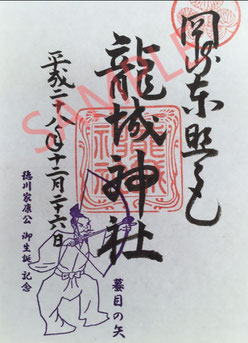 岡崎東照宮
龍城神社
平成二十八年十二月二十六日
徳川家康公 御生誕 記念
蟇目の矢
SAMPLE